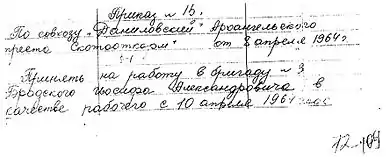 Приказ № 15.
По совхозу "Даниловский" Архангельского
треста Скотооткорм от 8 апреля 1964г
§-1
Принять на работу в бригаду № 3
Бродского Иосифа Александровича в
качестве рабочего с 10 апреля 1964